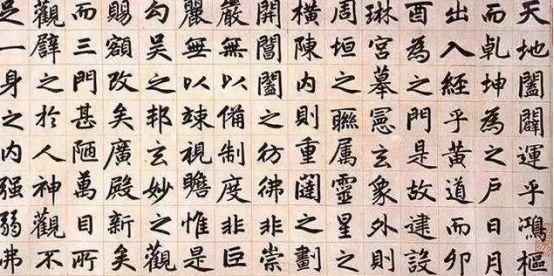 天地闔闢運乎鴻樞
而乹坤為之戶日月
出入經乎黃道而卯
酉為之門是故建設
琳宮摹憲玄象外則
周垣之聯属靈星之
橫陳内則重闥之劃
開閶闔之彷彿非崇
嚴無以備制度非巨
麗無以竦視瞻惟是
勾吴之邦玄妙之觀
賜額改矣廣殿新矣
而三門甚陋萬目所
觀譬之於人神觀不
足一身之内强弱弗